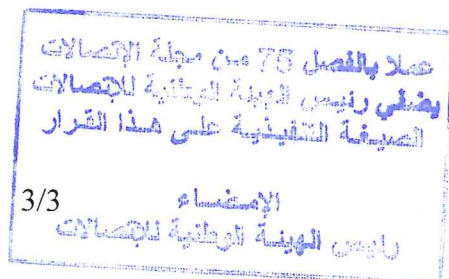 عملا بالفصل 75 من مجلة الإتصالات
يضفي رئيس الهيئة الوطنية للإتصالات
الصيغة التنفيذية على هذا القرار
الإمضاء
3/3
رئيس الهيئة الوطنية للإتصالات